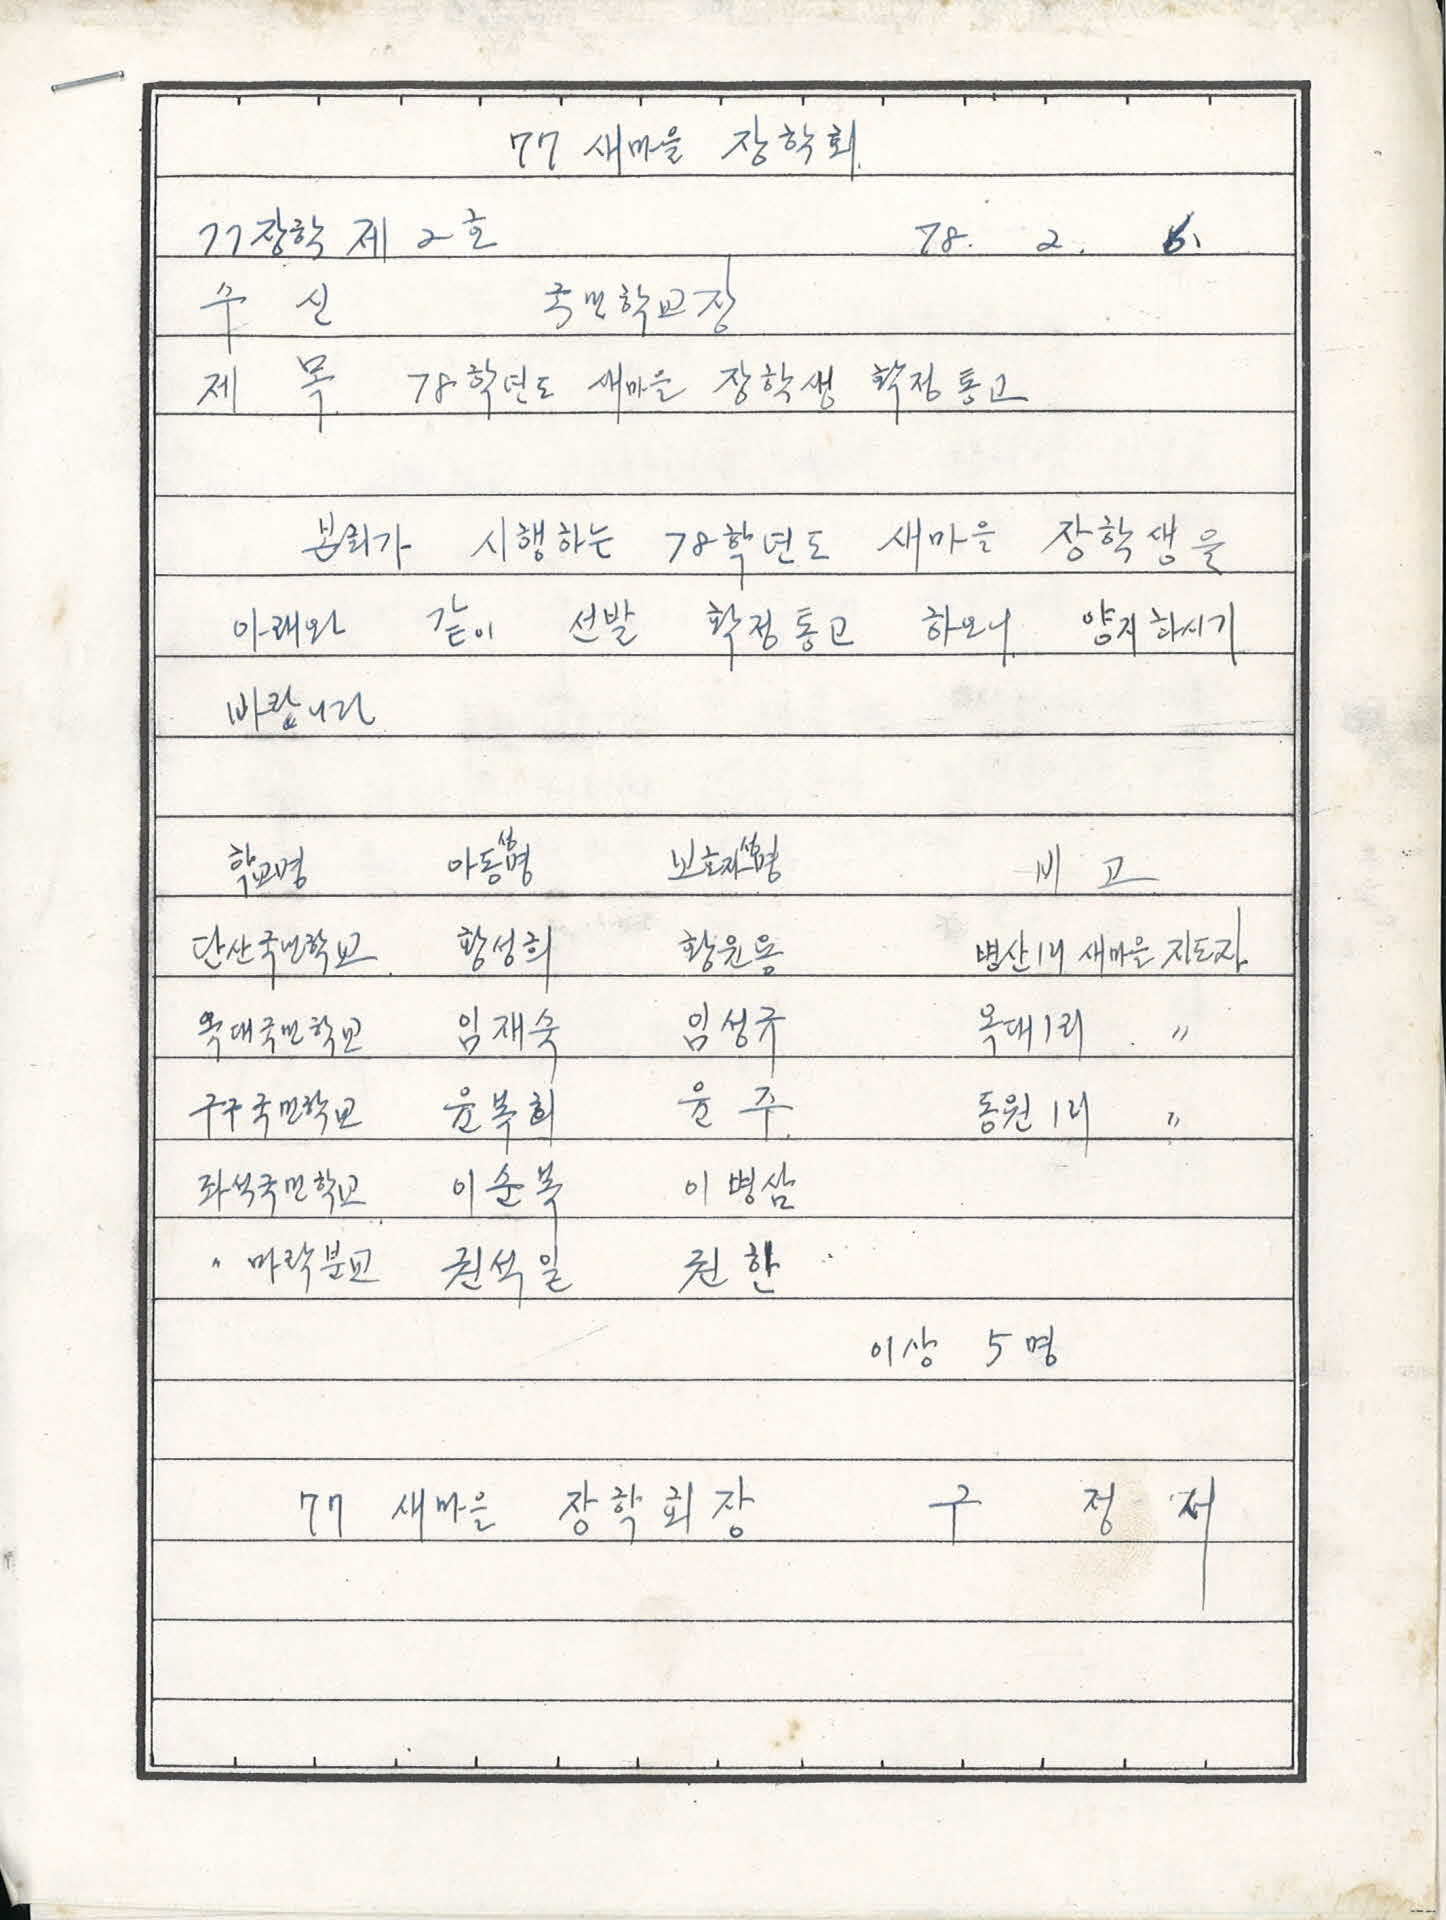 77 새마을 장학회
77장학 제 2호 78. 2. 6.
수 신 국민학교장
제 목 78학년도 새마을 장학생 확정통고
본회가 시행하는 78학년도 새마을 장학생을
아래와 같이 선발 확정통고 하오니 양지하시기
바랍니다
학교명 아동성명 보호자성명 비 고
단산국민학교 황성희 황윤용 병산1리 새마을 지도자
옥대국민학교 임재숙 임성규 옥대1리 〃
구구국민학교 윤복희 윤 주 동원1리 〃
좌석국민학교 이순복 이병삼
〃 마락분교 권석일 권한
이상 5명
77 새마을 장학회장 구 정